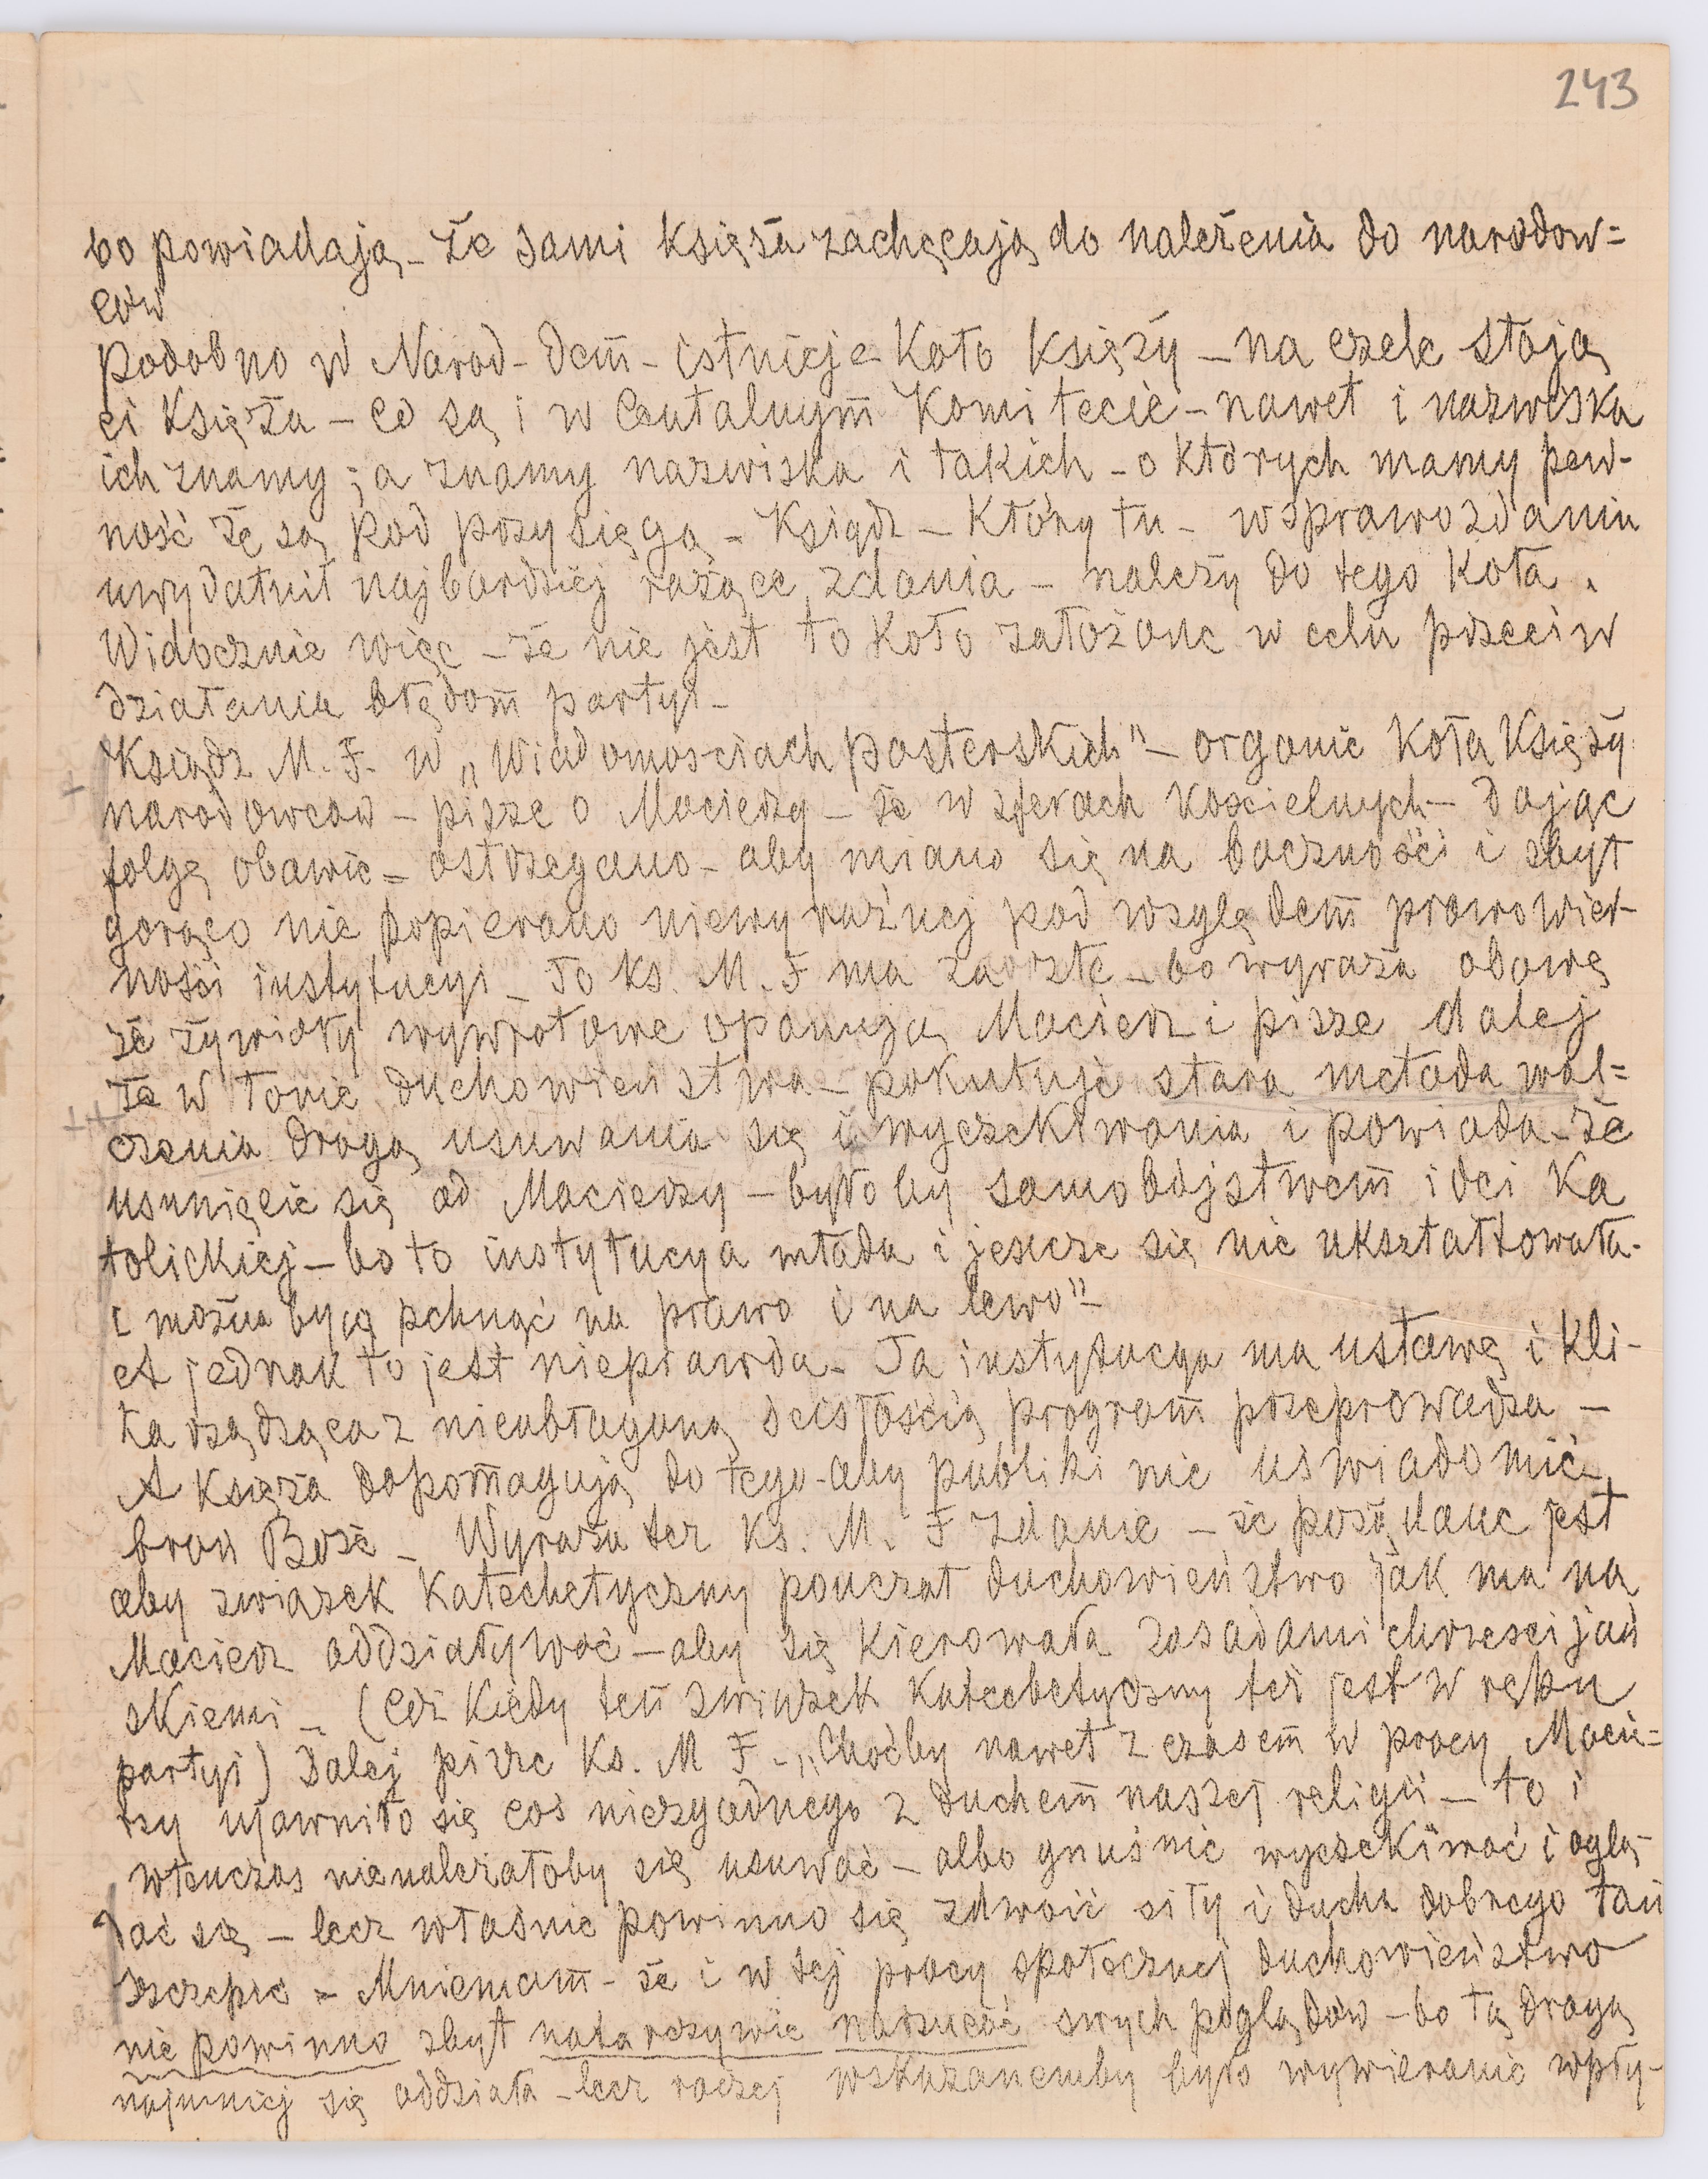 243
bo powiadają – że sami księża zachęcają do należenia do narodow=
ców
podobno w Narod – Dem – istnieje Koło księży – na czele stoją
ci księża – co są i w Centalnym Komitecie – nawet i nazwiska
ich znamy ; a znamy nazwiska i takich – o których mamy pew-
ność że są pod przysięgą – Ksiądz – który tu – w sprawozdaniu
uwydatnił najbardziej rażące zdania – należy do tego Koła .
Widocznie więc – że nie jest to Koło założone w celu przeciw
działania błędom partyi –
Ksiądz M. F. w „Wiadomosciach pasterskich" – organie Koła Księży
narodowców – pisze o Macierzy – że w sferach Kościelnych – dając
folgę obawie – ostrzegano – aby miano się na baczności i zbyt
gorąco nie popierano niewyraźnej pod względem prawowier-
ności instytucyi – To ks. M. F ma za złe – bo wyraża obawę
że żywioły wywrotowe opanują Macierz i pisze dalej
Że w łonie duchowieństwa – pokutuje stara metoda wal=
czenia drogą usuwania się i wyczekiwania i powiada – że
usunięcie się od Macierzy – byłoby samobójstwem idei Ka
tolickiej – bo to instytucya młoda i jeszcze się nie ukształtowała –
i można by ją pchnąć na prawo i na lewo" –
A jednak to jest nieprawda – Ta instytucya ma ustawę i kli-
ka rządząca z nieubłaganą ścisłością program przeprowadza –
A księża dopomagują do tego – aby publiki nie uświadomić –
broń Boże – Wyraża tez Ks. M. F zdanie – że pożądane jest
aby związek Katechetyczny pouczał duchowieństwo jak ma na
Macierz oddziaływać – aby się kierowała zasadami chrzescijań
skiemi – (Cóż kiedy ten związek katechetyczny też jest w ręku
partyi) Dalej pisze Ks. M F – „Choćby nawet z czasem w pracy Macie=
rzy ujawniło się coś niezgodnego z duchem naszej religii – to i
wtenczas nienależałoby się usuwać – albo gnuśnie wyczekiwać i oglą
dać się – lecz właśnie powinno się zdwoić siły i ducha dobrego tam
szczepić – Mniemam – że i w tej pracy społecznej duchowieństwo
nie powinno zbyt natarczywie narzucać swych poglądów – bo tą drogą
najmniej się oddziała – lecz raczej wskazanemby było wywieranie wpły-